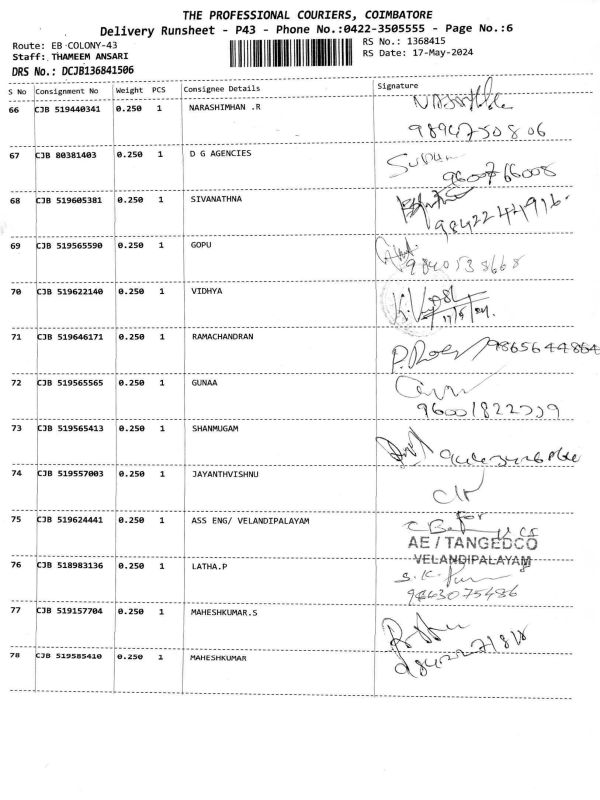 THE PROFESSIONAL COURIERS, COIMBATORE
Delivery Runsheet - P43 - Phone No.:0422-3505555 - Page No.:6
Route: EB COLONY-43 RS No.: 1368415
Staff: THAMEEM ANSARI RS Date: 17-May-2024
DRS No.: DCJB136841506
S No Consignment No Weight PCS Consignee Details Signature
66 CJB 519440341 0.250 1 NARASHIMHAN .R
9894750806
67 CJB 80381403 0.250 1 D G AGENCIES
9600766008
68 CJB 519605381 0.250 1 SIVANATHNA
9842244916.
69 CJB 519565590 0.250 1 GOPU
9840538668
70 CJB 519622140 0.250 1 VIDHYA
17/5/24.
71 CJB 519646171 0.250 1 RAMACHANDRAN
9865644864
72 CJB 519565565 0.250 1 GUNAA
73 CJB 519565413 0.250 1 SHANMUGAM
74 CJB 519557003 0.250 1 JAYANTHVISHNU
75 CJB 519624441 0.250 1 ASS ENG/ VELANDIPALAYAM
For
AE / TANGEDCO
VELANDIPALAYAM
76 CJB 518983136 0.250 1 LATHA.P
S.K.
9443075486
77 CJB 519157704 0.250 1 MAHESHKUMAR.S
78 CJB 519585410 0.250 1 MAHESHKUMAR